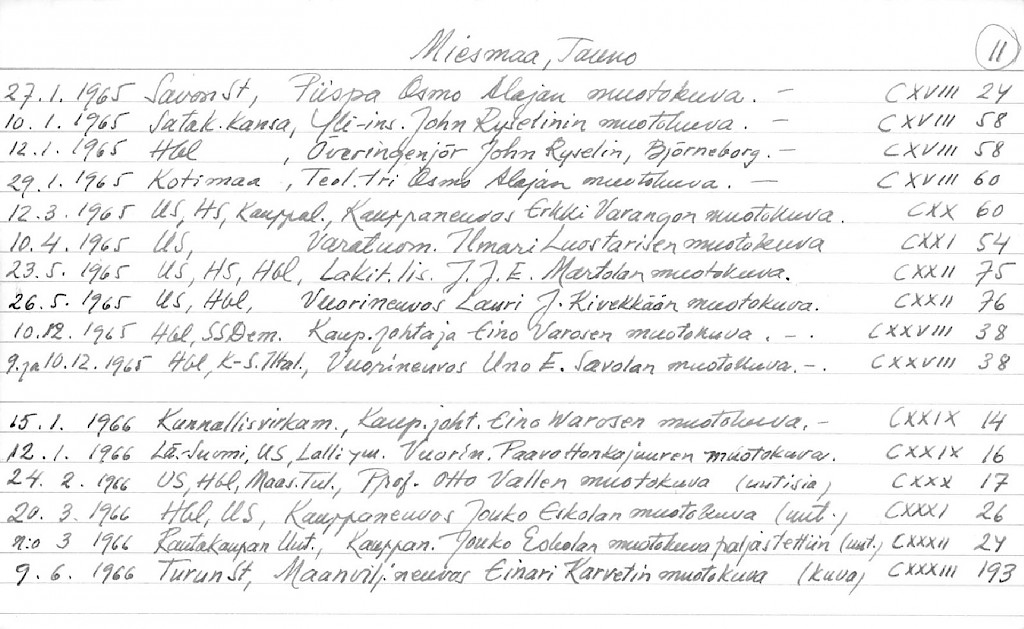 Miesmaa, Tauno 11
27.1. 1965 SavonSt, Piispa Osmo Alajan muotokuva. – CXVIII 24
10.1. 1965 Satak. Kansa, Yli-ins. John Ryselinin muotokuva. – CXVIII 58
12.1. 1965 Hbl , Överingenjör John Ryselin, Björneborg. – CXVIII 58
29.1. 1965 Kotimaa , Teol. tri Osmo Alajan muotokuva. – CXVIII 60
12.3. 1965 US, HS, Kauppal., Kauppaneuvos Erkki Varangon muotokuva. CXX 60
10.4. 1965 US, Varatuom. Ilmari Luostarisen muotokuva CXXI 54
23.5. 1965 US, HS, Hbl, Lakit. lis. J. J. E. Martolan muotokuva. CXXII 75
26.5. 1965 US, Hbl, Vuorineuvos Lauri J. Kivekkään muotokuva. CXXII 76
10.12. 1965 Hbl, SSDem. Kaup.johtaja Eino Varosen muotokuva . – . CXXVIII 38
9. ja 10.12. 1965 Hbl, K-S. Iltal., Vuorineuvos Uno E. Savolan muotokuva. – . CXXVIII 38
15.1. 1966 Kunnallisvirkam., Kaup.joht. Eino Warosen muotokuva. – CXXIX 14
12.1. 1966 Lä-Suomi, US, Lalli ym. Vuorin. Paavo Honkajuuren muotokuva. CXXIX 16
24. 2. 1966 US, Hbl, Maas. Tul., Prof. Otto Vallen muotokuva (uutisia) CXXX 17
20. 3. 1966 Hbl, US, Kauppaneuvos Jouko Eskolan muotokuva (uut.) CXXXI 26
n:o 3 1966 Rautakaupan Uut., Kauppan. Jouko Eskolan muotokuva paljastettiin (uut.) CXXXII 24
9. 6. 1966 TurunSt, Maanvilj.neuvos Einari Karvetin muotokuva (kuva) CXXXIII 193